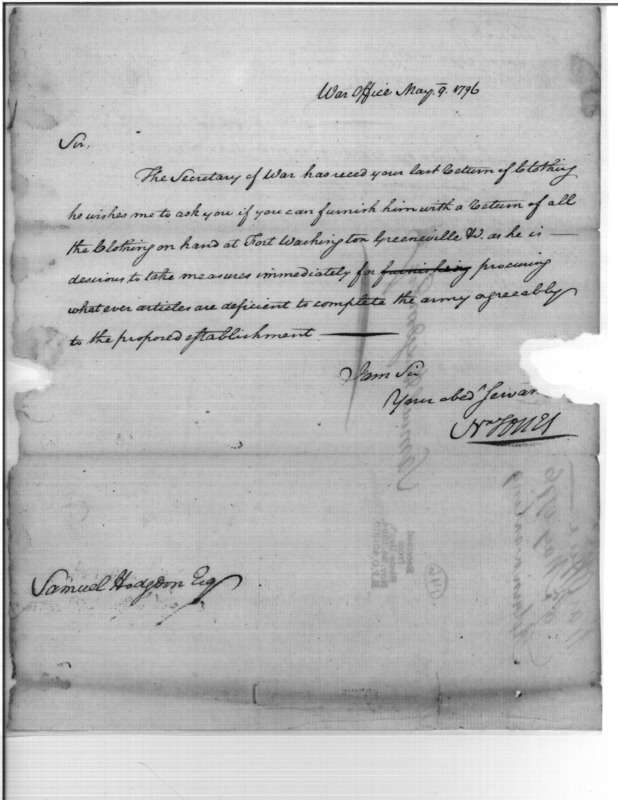 War Office May. 9. 1796
Sir,
The Secretary of War has reced your last Return of Clothing
he wishes me to ask you if you can furnish him with a Return of all
the Clothing on hand at Fort Washington Greeneville &c. as he is —
desirous to take measures immediately for furnishing procuring
what ever articles are deficient to complete the army agreeably
to the proposed establishment ———
I am Sir
Your obedt Servan
Wm Jones
Samuel Hodgdon Esq